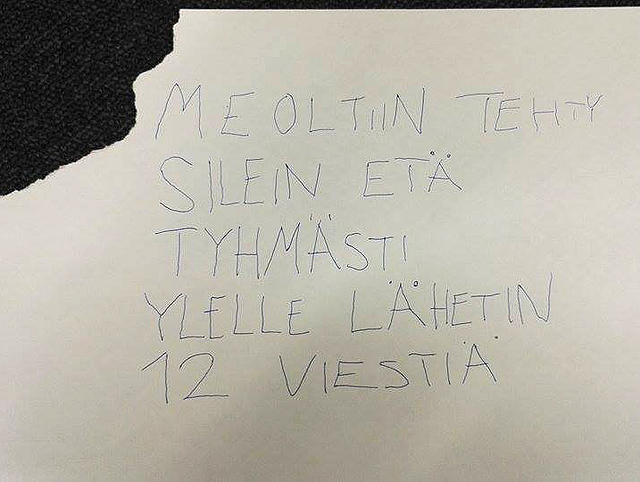 ME OLTIIN TEHTY
SILEIN ETÄ
TYHMÄSTI
YLELLE LÄHETIN
12 VIESTIÄ